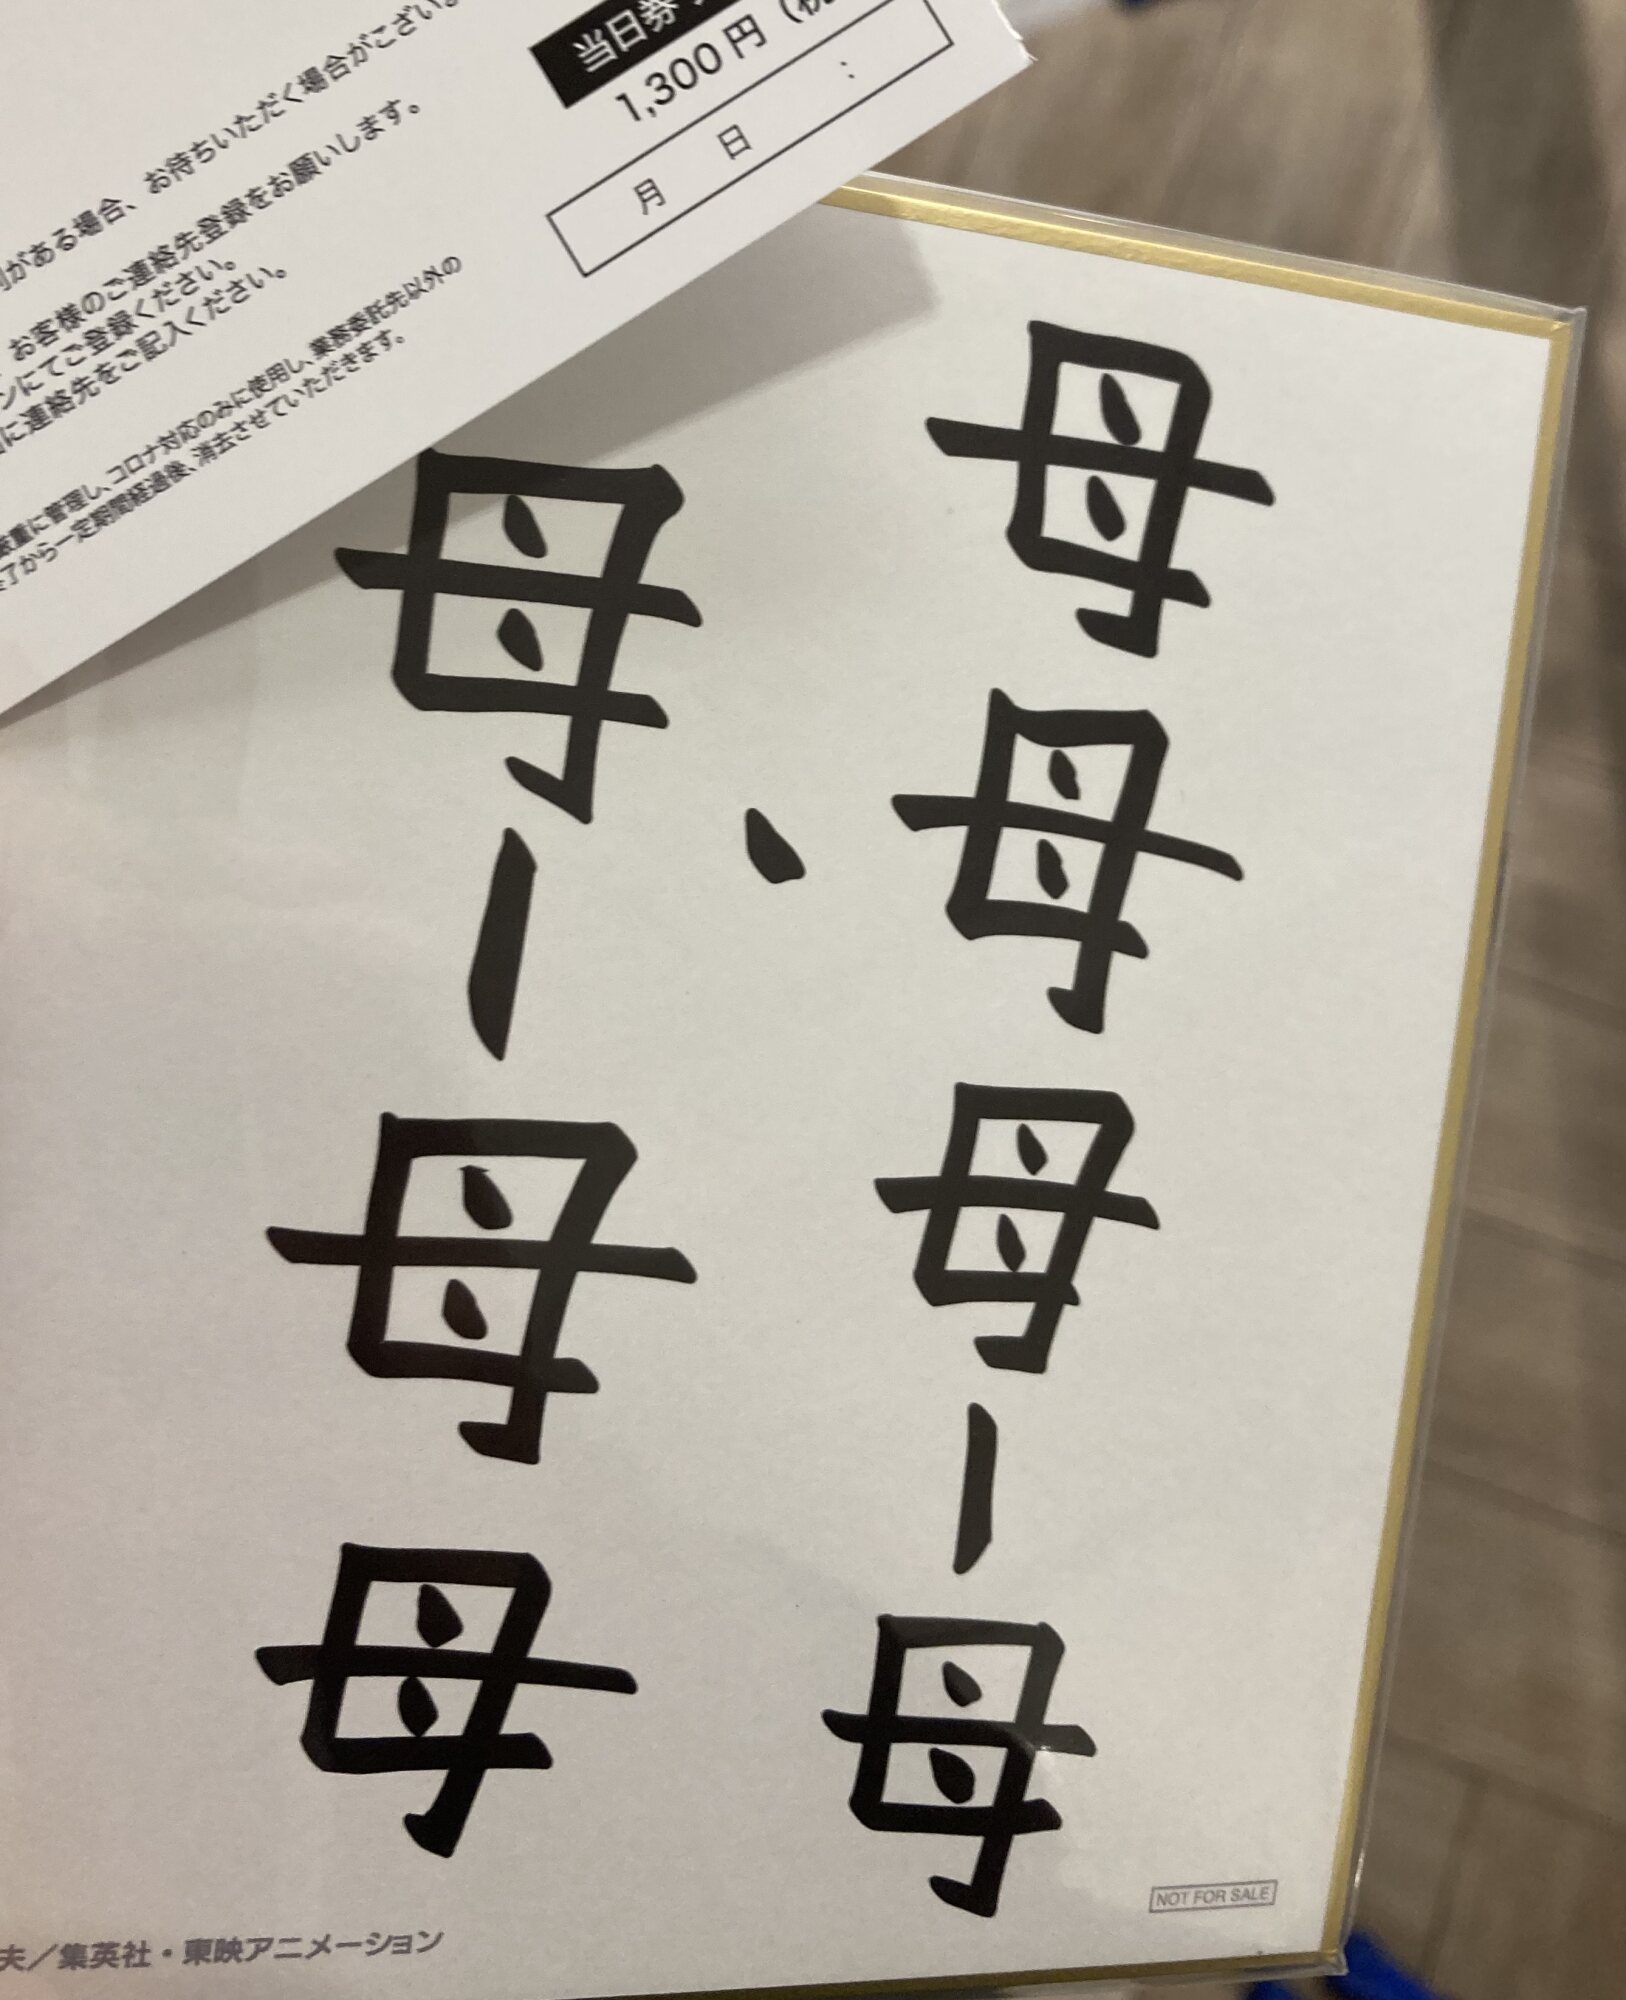 当日券
1,300円（税
月 日 :
がある場合、お待ちいただく場合がござい
お客様のご連絡先登録をお願いします。
にてご登録ください。
に連絡先をご記入ください。
厳重に管理し、コロナ対応のみに使用し、業務委託先以外の
了から一定期間経過後、消去させていただきます。
母母母ー母
母、ー母母
NOT FOR SALE
夫／集英社・東映アニメーション